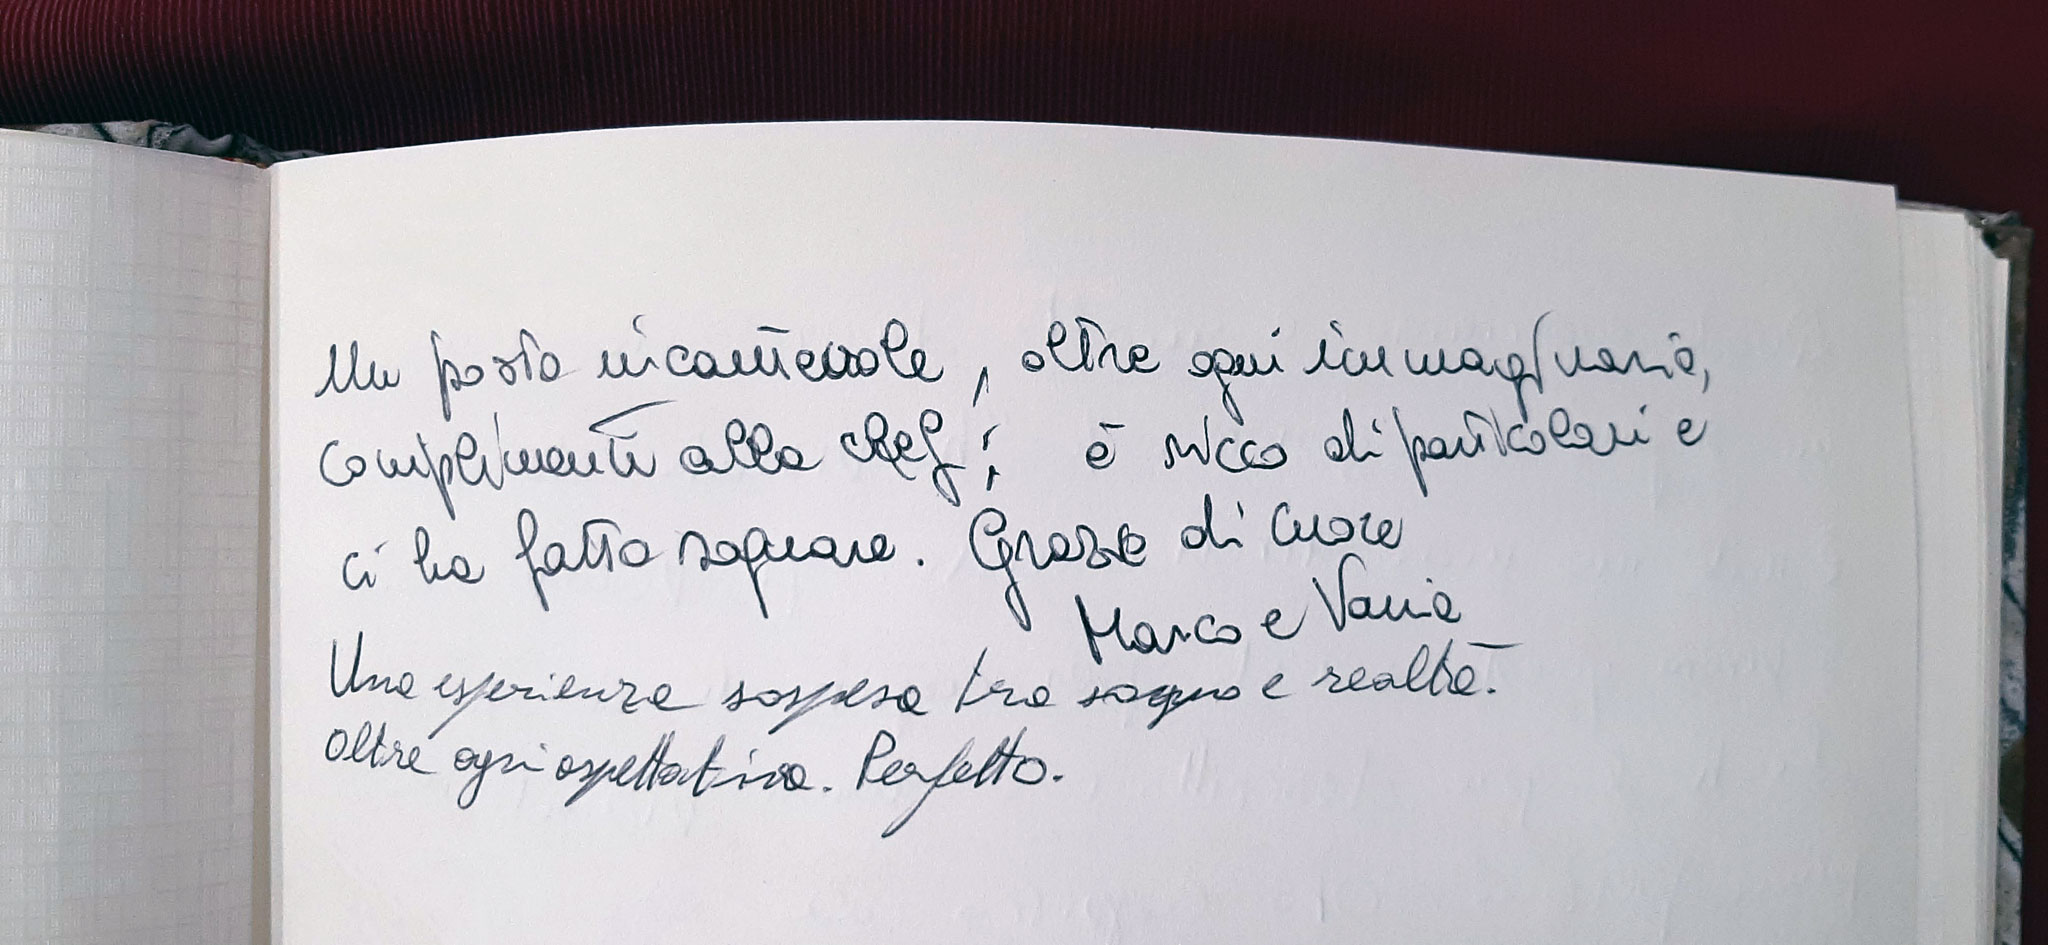 Un posto incantevole, oltre ogni immaginario,
complimenti alla chef! è ricco di particolari e
ci ha fatto sognare. Grazie di cuore
Marco e Vania
Una esperienza sospesa tra sogno e realtà.
Oltre ogni aspettativa. Perfetto.